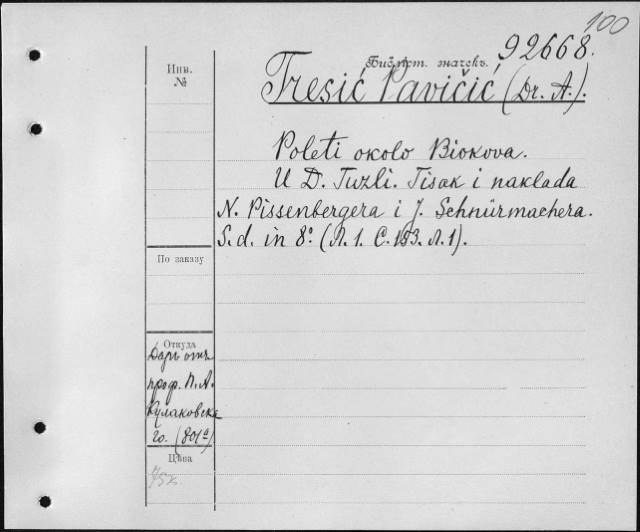 100
Библіот. значекъ. 92668.
Инв.
№
Tresić Pavičić (Dr. A.).
Poleti okolo Biokova.
U D. Tuzli. Tisak i naklada
N. Pissenbergera i J. Schnürmachera.
S. d. in 8º (Л. 1. С. 153. Л. 1).
По заказу
Откуда
Даръ отъ
проф. П. А.
Кулаковска
го. (801а)
Цѣна